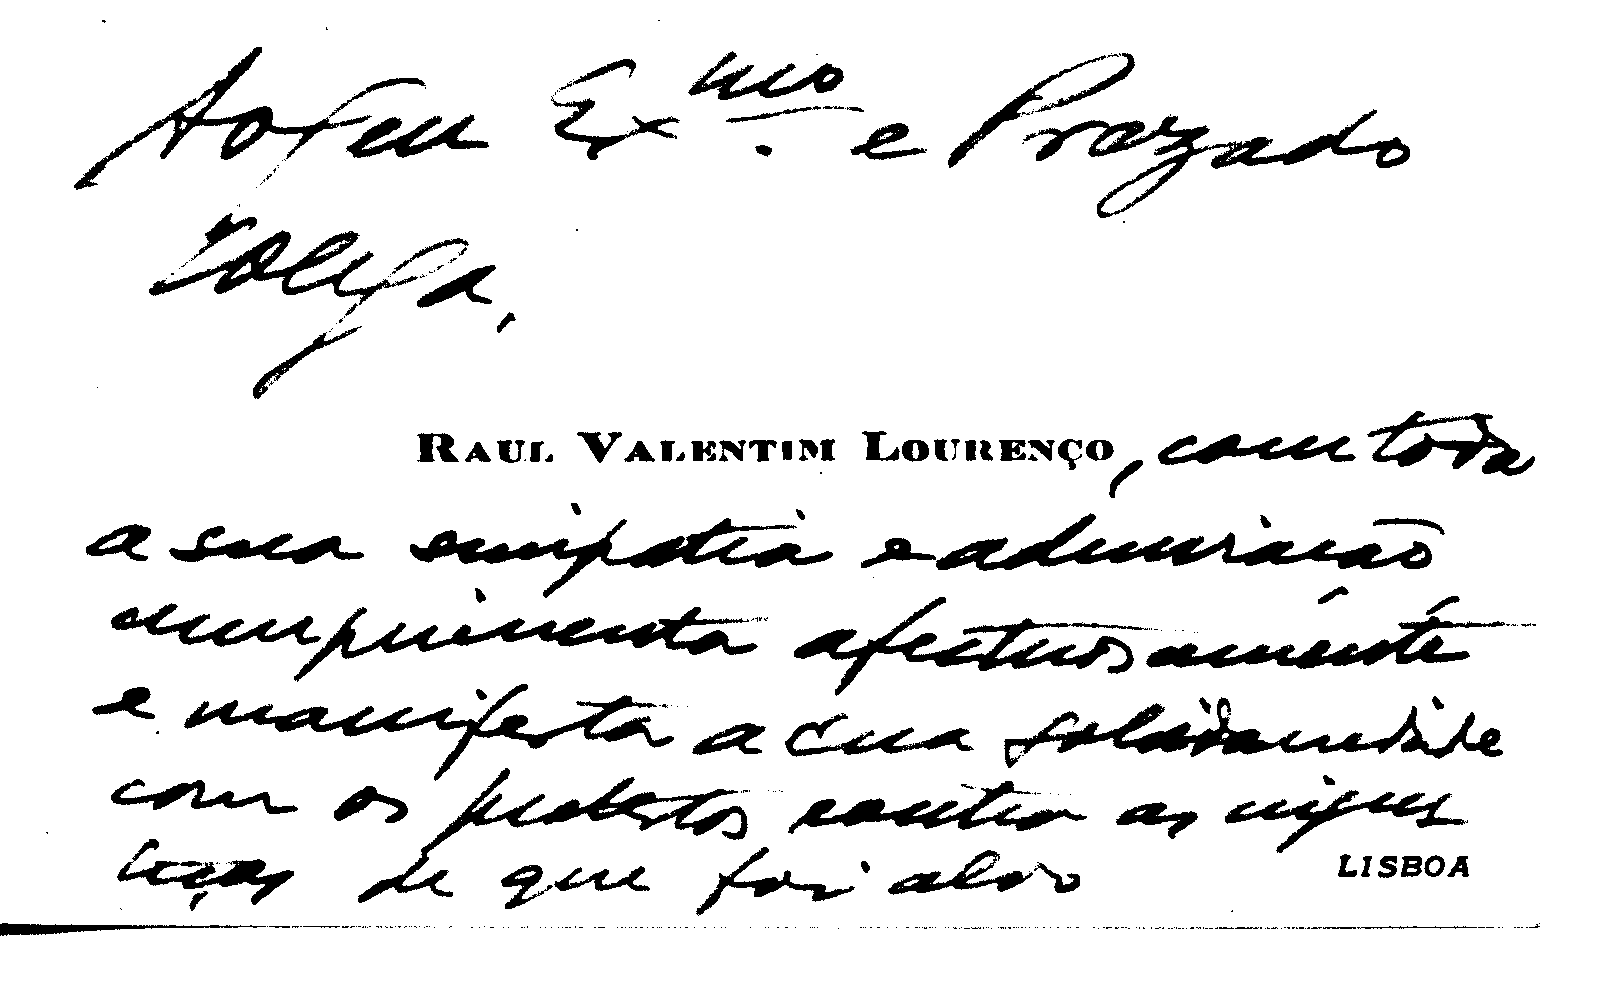 Ao seu Ex.mo e Prezado
Colega,
RAUL VALENTIM LOURENÇO, com toda
a sua simpatia e admiração
cumprimenta afectuosamente
e manifesta a sua solidariedade
com os protestos contra as injus
tiças de que foi alvo
LISBOA